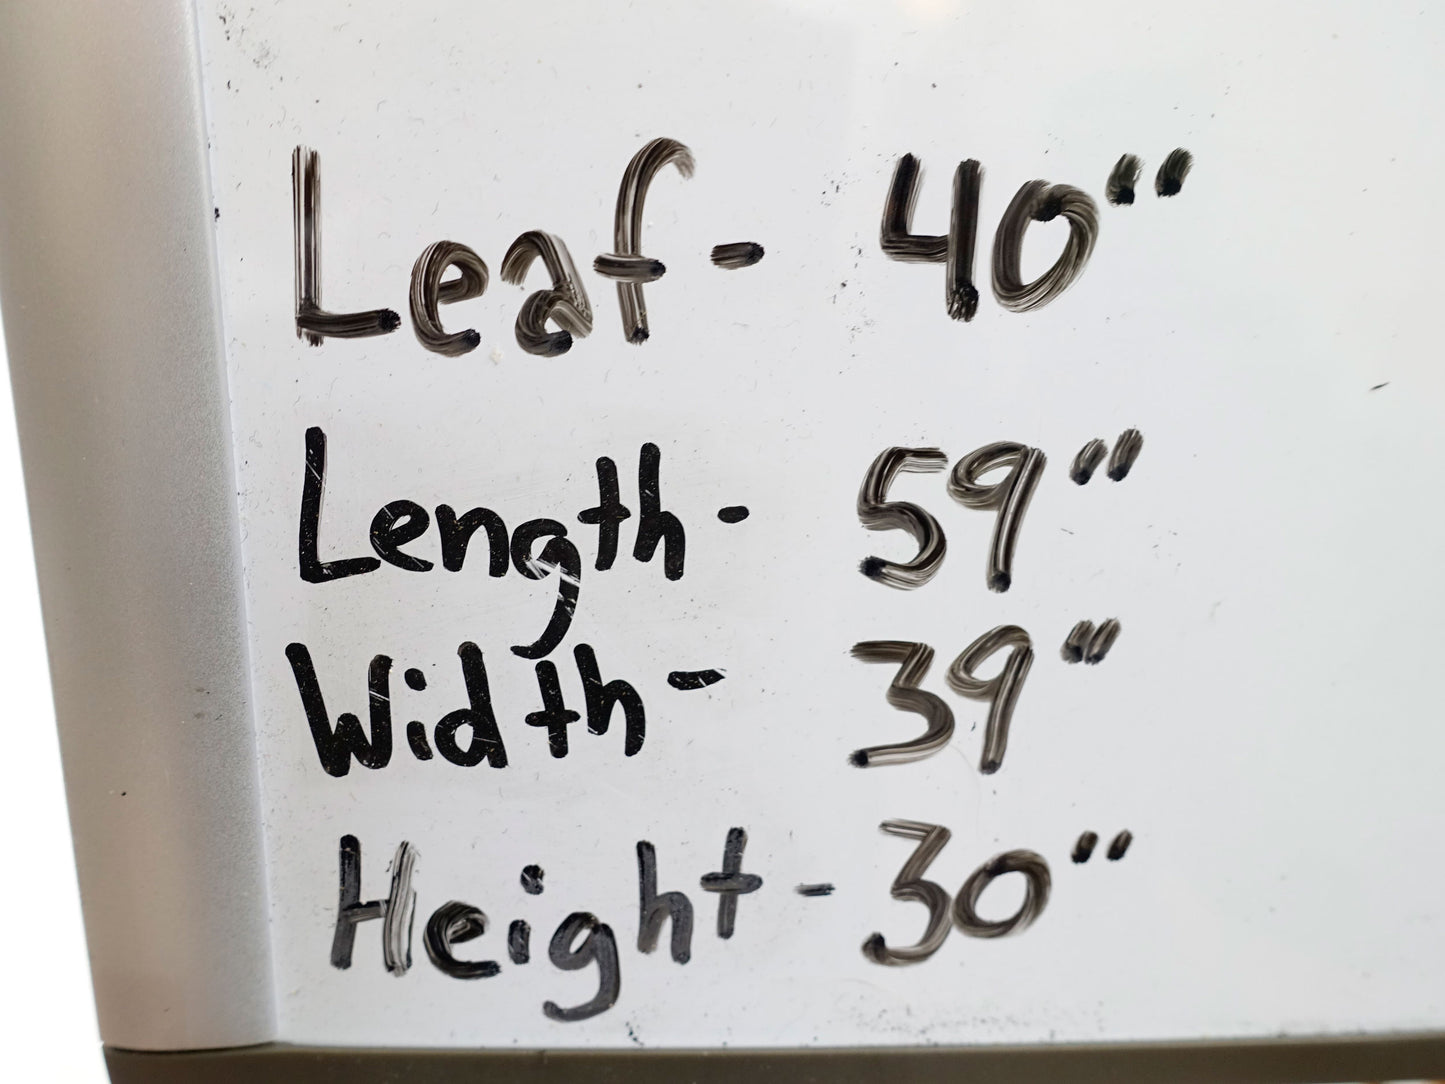 Leaf - 40"
Length - 59"
Width - 39"
Height - 30"